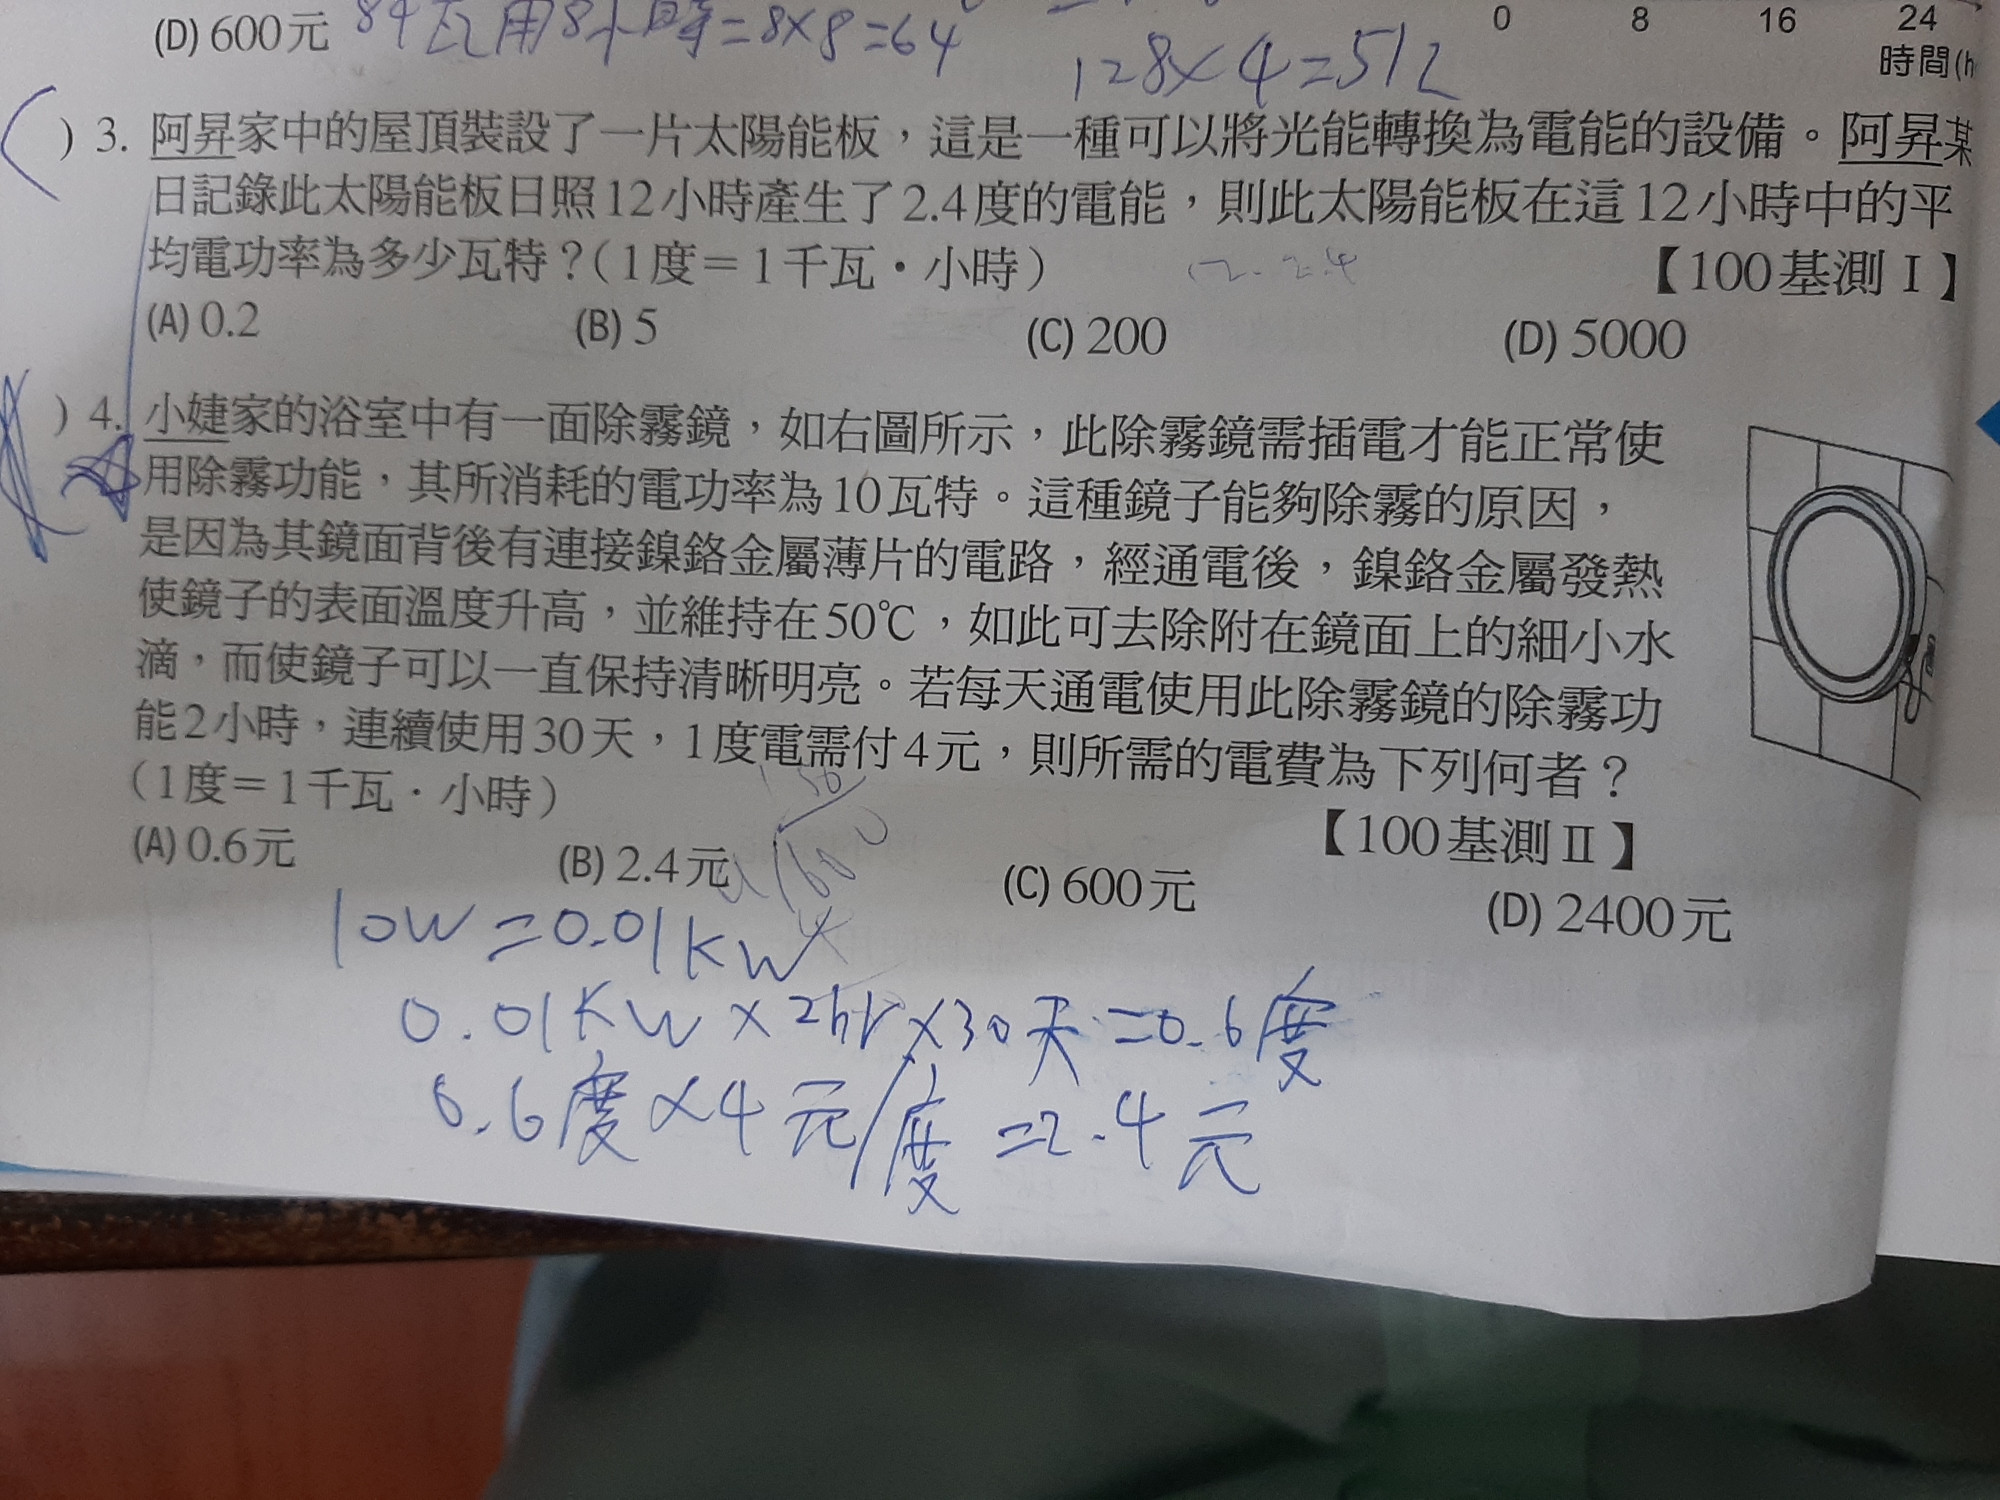 (D) 600元 8千瓦用8小時=8×8=64
128×4=512
0 8 16 24
時間(h
) 3. 阿昇家中的屋頂裝設了一片太陽能板，這是一種可以將光能轉換為電能的設備。阿昇某
日記錄此太陽能板日照12小時產生了2.4度的電能，則此太陽能板在這12小時中的平
均電功率為多少瓦特？(1度＝1千瓦・小時) 【100基測Ⅰ】
(A) 0.2 (B) 5 (C) 200 (D) 5000
) 4. 小婕家的浴室中有一面除霧鏡，如右圖所示，此除霧鏡需插電才能正常使
用除霧功能，其所消耗的電功率為10瓦特。這種鏡子能夠除霧的原因，
是因為其鏡面背後有連接鎳鉻金屬薄片的電路，經通電後，鎳鉻金屬發熱
使鏡子的表面溫度升高，並維持在50℃，如此可去除附在鏡面上的細小水
滴，而使鏡子可以一直保持清晰明亮。若每天通電使用此除霧鏡的除霧功
能2小時，連續使用30天，1度電需付4元，則所需的電費為下列何者？
(1度＝1千瓦・小時) 【100基測Ⅱ】
(A) 0.6元 (B) 2.4元 (C) 600元 (D) 2400元
10W=0.01KW
0.01KW×2hr×30天=0.6度
0.6度×4元/度=2.4元